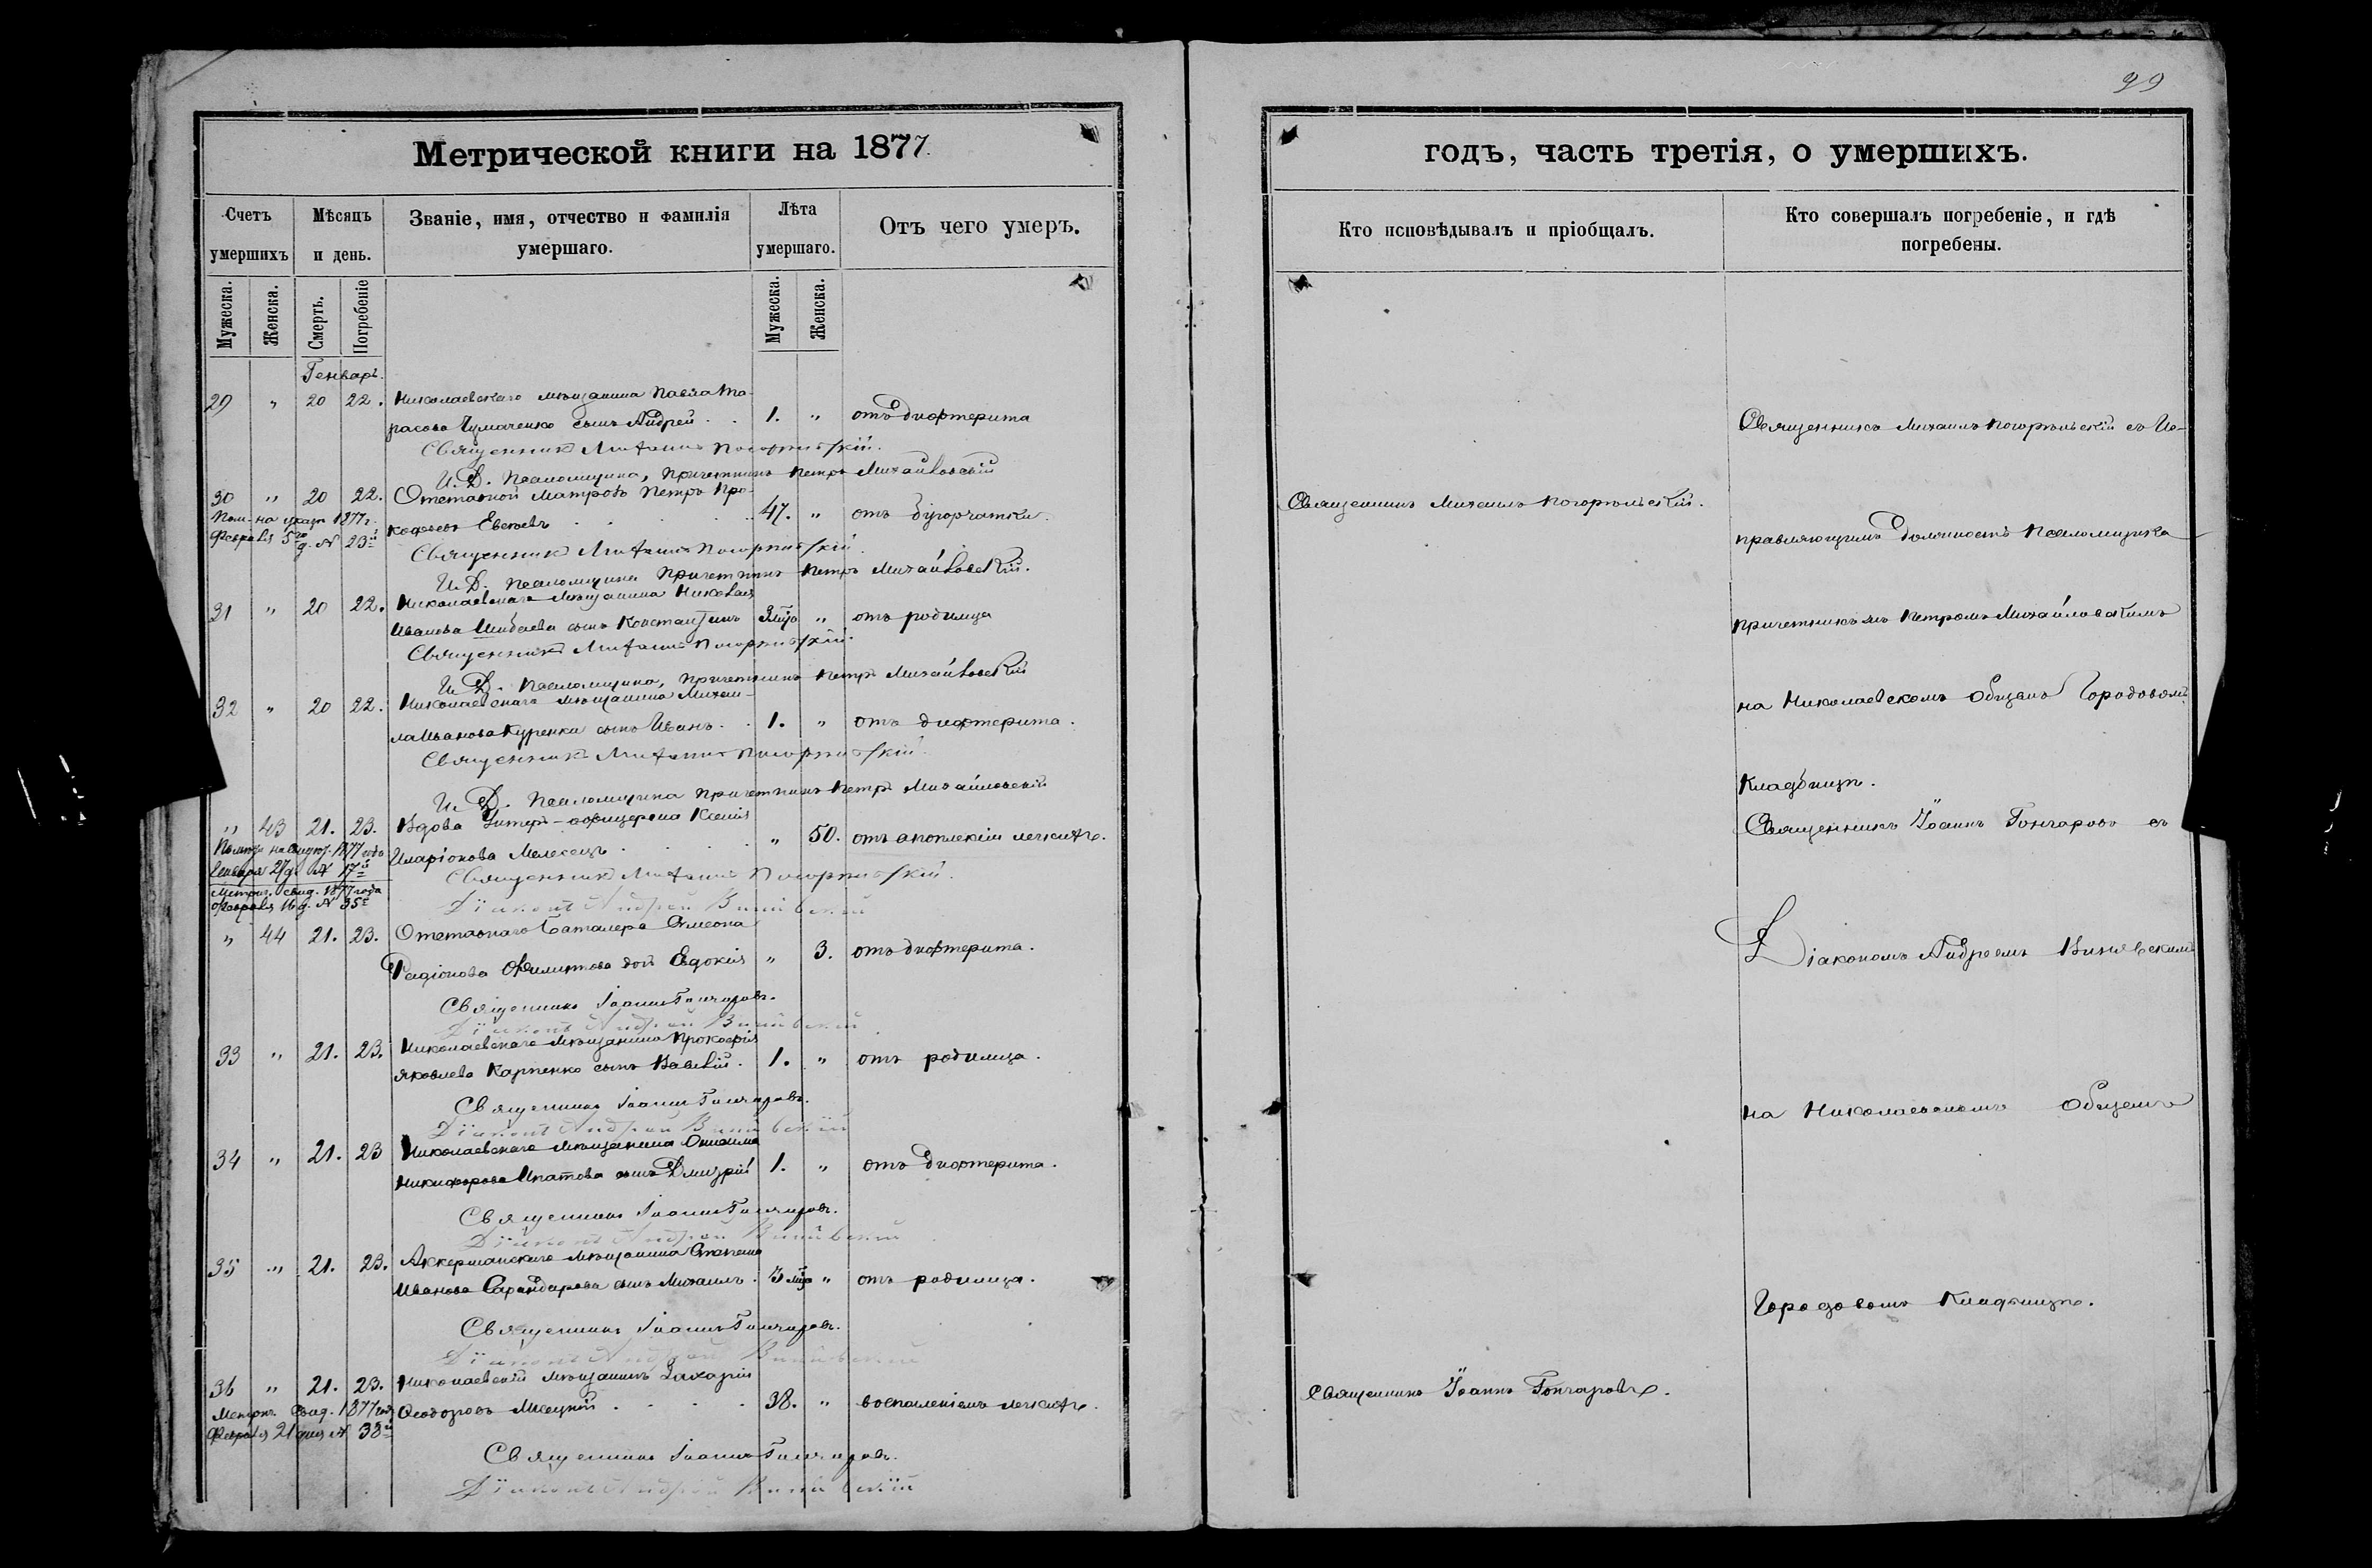 99
Метрической книги на 1877.
годъ, часть третія, о умершихъ.
Счетъ умершихъ
Мѣсяцъ и день.
Званіе, имя, отчество и фамилія умершаго.
Лѣта умершаго.
Отъ чего умеръ.
Кто исповѣдывалъ и пріобщалъ.
Кто совершалъ погребеніе, и гдѣ погребены.
Мужеска.
Женска.
Смерть.
Погребеніе
Мужеска.
Женска.
Генварь.
29 " 20 22. Николаевскаго мѣщанина Павла Та-
расова Чумаченко сынъ Андрей . . 1. " отъ дифтерита
Священникъ Михаилъ Погорѣльскій.
И. Д. Псаломщика, Причетникъ Петръ Михайловскій
30 " 20 22. Отставной Матросъ Петръ Про-
кофьевъ 47. " отъ бугорчатки.
1877 г.
Февраля 5 д. № 23й
Священникъ Михаилъ Погорѣльскій.
И. Д. Псаломщика Причетникъ Петръ Михайловскій.
31 " 20 22. Николаевскаго мѣщанина Николая
Иванова сынъ Константинъ " отъ родимца
Священникъ Михаилъ Погорѣльскій.
И. Д. Псаломщика, Причетникъ Петръ Михайловскій
32 " 20 22. Николаевскаго мѣщанина Михаи-
ла Иванова Куренка сынъ Иванъ . . 1. " отъ дифтерита.
Священникъ Михаилъ Погорѣльскій.
И. Д. Псаломщика Причетникъ Петръ Михайловскій
" 43 21. 23. Вдова Унтеръ-офицерша Ксенія
Иларіонова " 50. отъ апоплексіи легкихъ.
1877 года
Генваря 27 д. № 17й
Метрич. свид. 1877 года
Февраля 16 д. № 35й
Священникъ Михаилъ Погорѣльскій.
Діаконъ Андрей
" 44 21. 23. Отставнаго Баталера Симеона
Родіонова Филиппова дочь Евдокія " 3. отъ дифтерита.
Священникъ Іоаннъ Гончаровъ.
Діаконъ Андрей
33 " 21. 23. Николаевскаго мѣщанина Прокофія
Яковлева Карпенко сынъ Василій. 1. " отъ родимца.
Священникъ Іоаннъ Гончаровъ.
Діаконъ Андрей
34 " 21. 23 Николаевскаго мѣщанина
Никифорова Ипатова сынъ Дмитрій 1. " отъ дифтерита.
Священникъ Іоаннъ Гончаровъ.
Діаконъ Андрей
35 " 21. 23. Аккерманскаго мѣщанина Степана
Иванова сынъ Михаилъ. 3 " отъ родимца.
Священникъ Іоаннъ Гончаровъ.
Діаконъ Андрей
36 " 21. 23. Николаевскій мѣщанинъ Захарій
Ѳеодоровъ 38. " воспаленіемъ легкихъ.
Метрич. свид. 1877 года
Февраля 21 дня № 38й
Священникъ Іоаннъ Гончаровъ.
Діаконъ Андрей
Священникъ Михаилъ Погорѣльскій.
Священникъ Іоаннъ Гончаровъ.
Священникъ Михаилъ Погорѣльскій съ Ис-
правляющимъ должность Псаломщика
причетникомъ Петромъ Михайловскимъ
на Николаевскомъ общемъ Городовомъ
Кладбищѣ.
Священникъ Іоаннъ Гончаровъ съ
Діакономъ Андреемъ
на Николаевскомъ общемъ
Городовомъ Кладбищѣ.